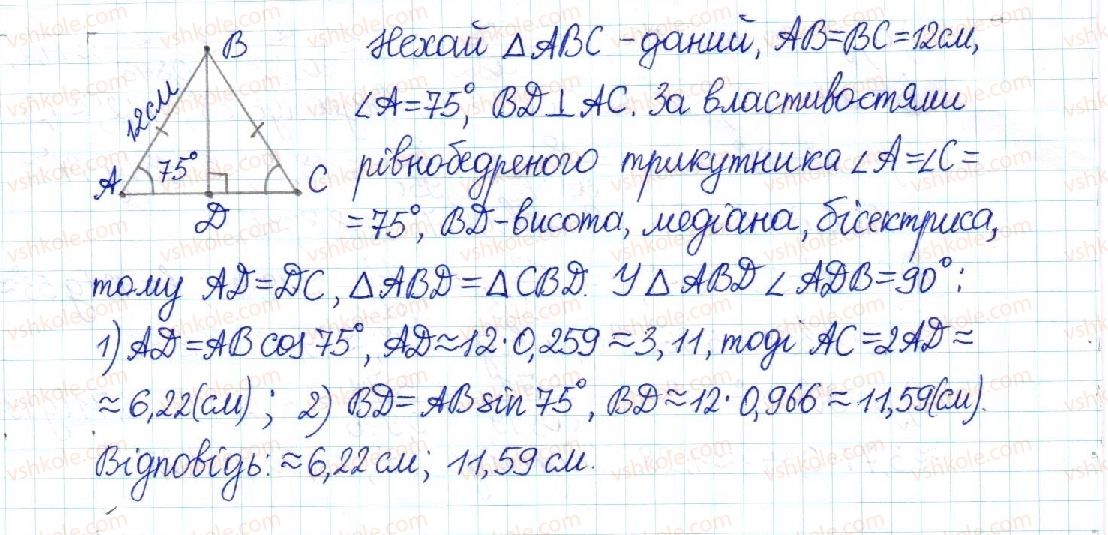 B
12см
A 75° C
D
Нехай △ABC - даний, AB=BC=12см,
∠A=75°, BD⊥AC. За властивостями
рівнобедреного трикутника ∠A=∠C=
=75°, BD-висота, медіана, бісектриса,
тому AD=DC, △ABD=△CBD. У △ABD ∠ADB=90°:
1) AD=AB cos 75°, AD≈12·0,259≈3,11, тоді AC=2AD≈
≈6,22(см); 2) BD=AB sin 75°, BD≈12·0,966≈11,59(см).
Відповідь: ≈6,22см; 11,59см.
vshkole.com